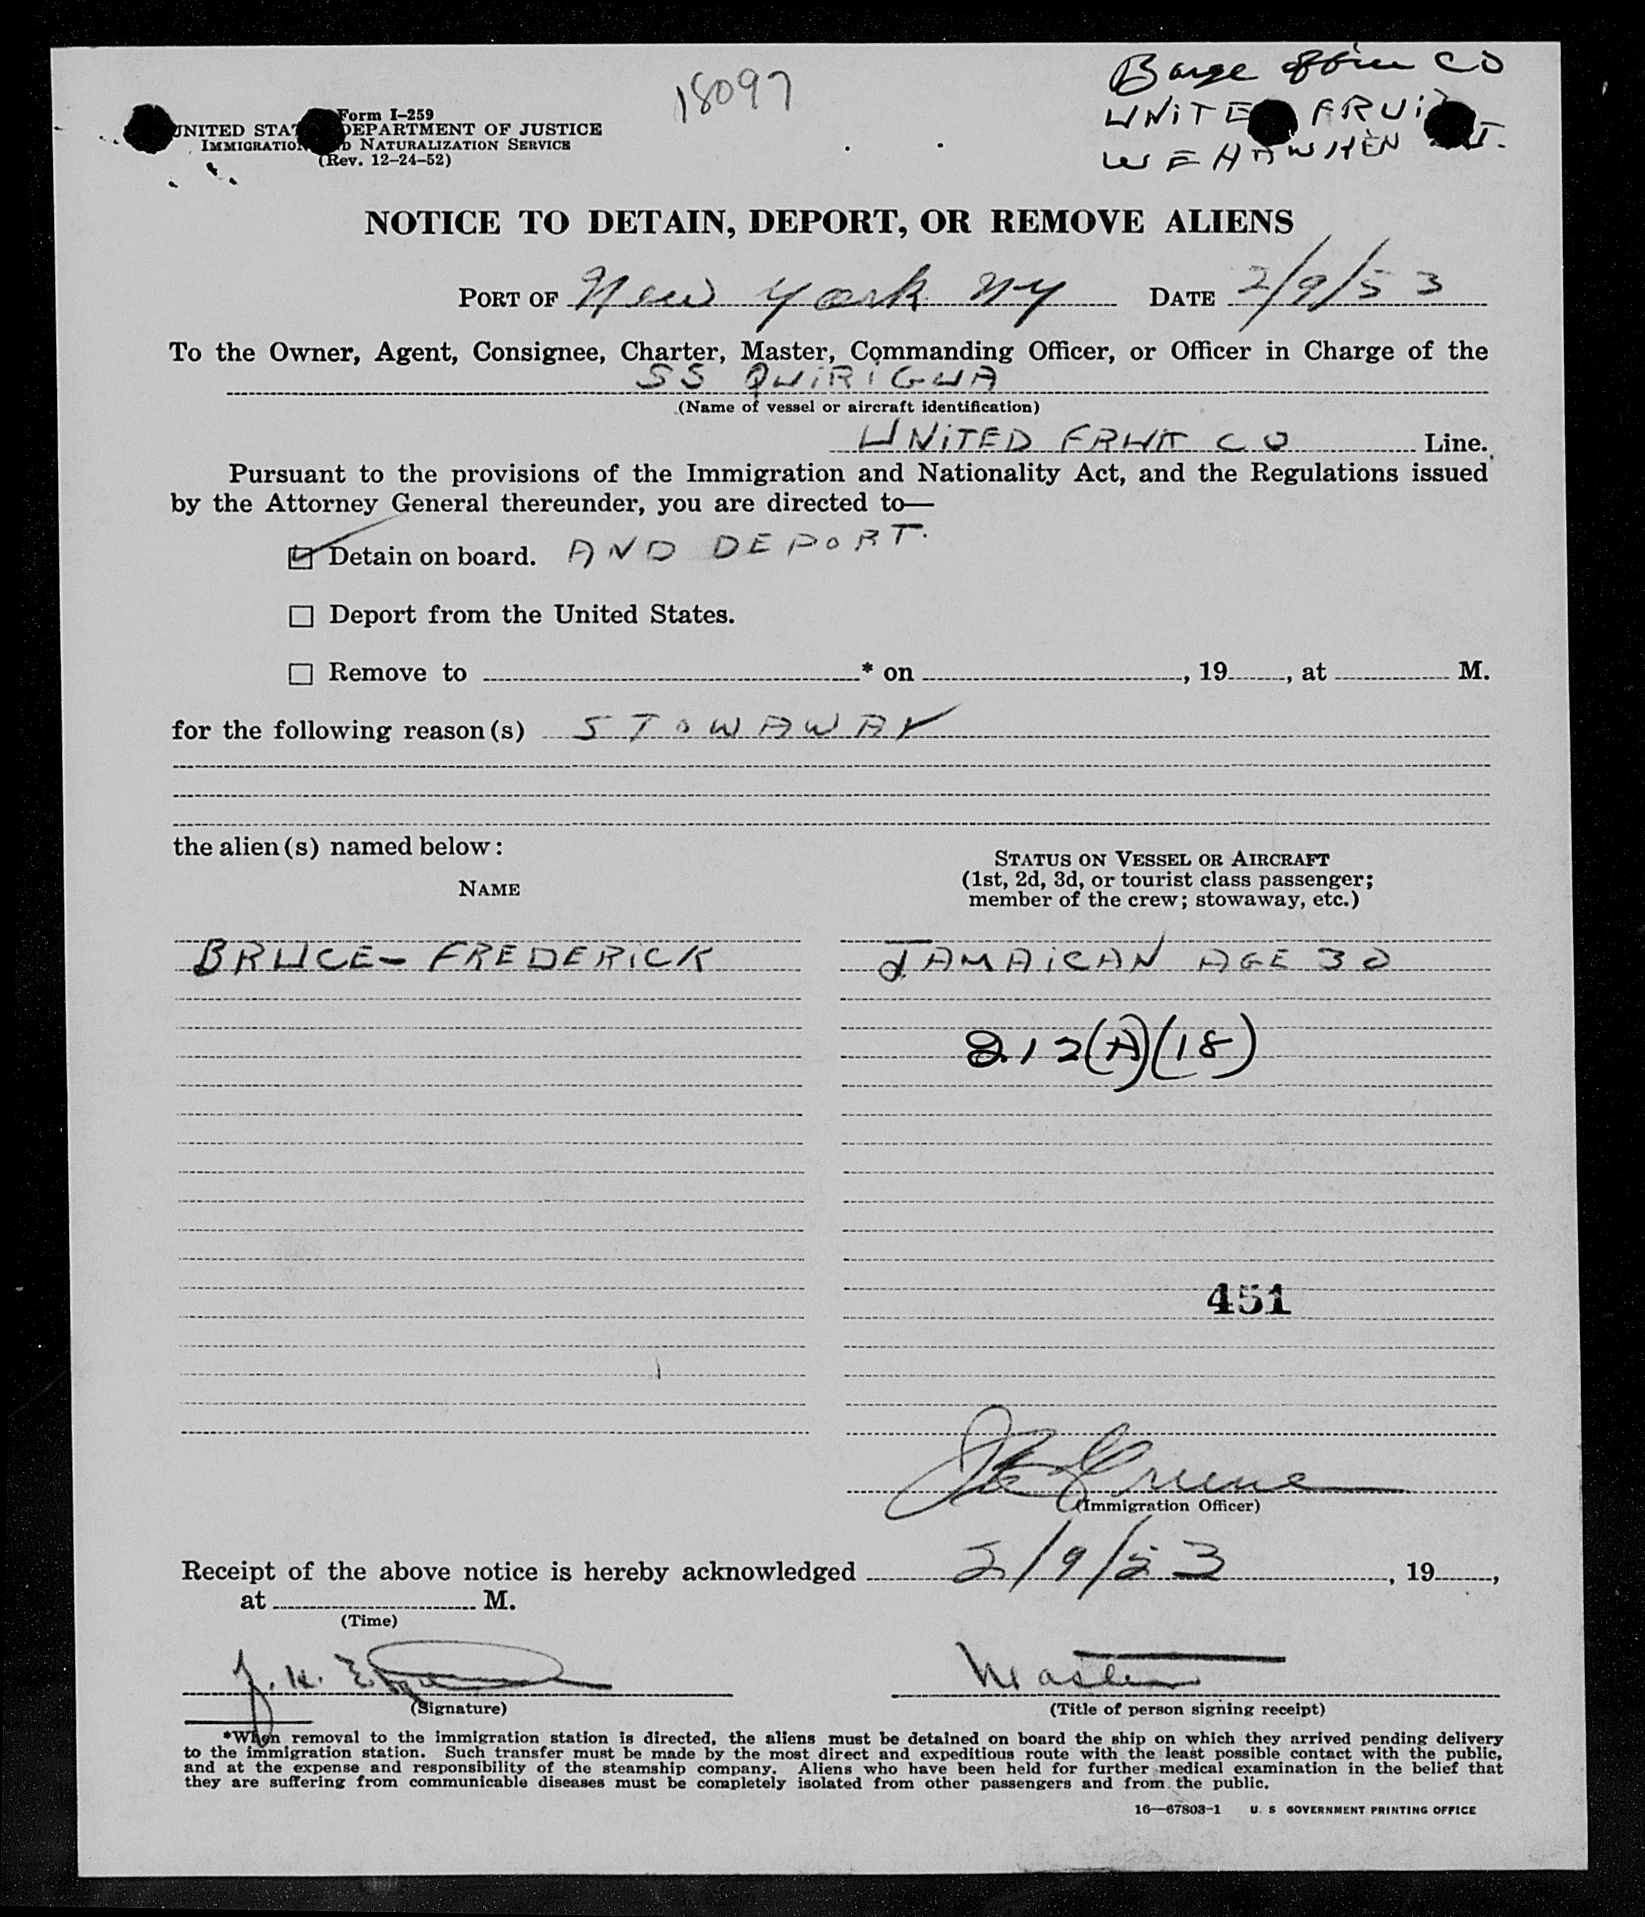 18097
Barge office CO
UNITED FRUIT
WEHAWKEN J.
Form I-259
UNITED STA DEPARTMENT OF JUSTICE
IMMIGRATION D NATURALIZATION SERVICE
(Rev. 12-24-52)
NOTICE TO DETAIN, DEPORT, OR REMOVE ALIENS
PORT OF New York NY DATE 2/9/53
To the Owner, Agent, Consignee, Charter, Master, Commanding Officer, or Officer in Charge of the
SS QUIRIGUA
(Name of vessel or aircraft identification)
UNITED FRUIT CO Line.
Pursuant to the provisions of the Immigration and Nationality Act, and the Regulations issued
by the Attorney General thereunder, you are directed to—
Detain on board. AND DEPORT.
Deport from the United States.
Remove to * on , 19 , at M.
for the following reason(s) STOWAWAY
the alien(s) named below:
NAME
STATUS ON VESSEL OR AIRCRAFT
(1st, 2d, 3d, or tourist class passenger;
member of the crew; stowaway, etc.)
BRUCE- FREDERICK JAMAICAN AGE 30
212(A)(18)
451
Greene
(Immigration Officer)
Receipt of the above notice is hereby acknowledged 2/9/53 , 19 ,
at M.
(Time)
J. K.
Master
(Signature) (Title of person signing receipt)
*When removal to the immigration station is directed, the aliens must be detained on board the ship on which they arrived pending delivery
to the immigration station. Such transfer must be made by the most direct and expeditious route with the least possible contact with the public,
and at the expense and responsibility of the steamship company. Aliens who have been held for further medical examination in the belief that
they are suffering from communicable diseases must be completely isolated from other passengers and from the public.
16—67803-1 U. S GOVERNMENT PRINTING OFFICE